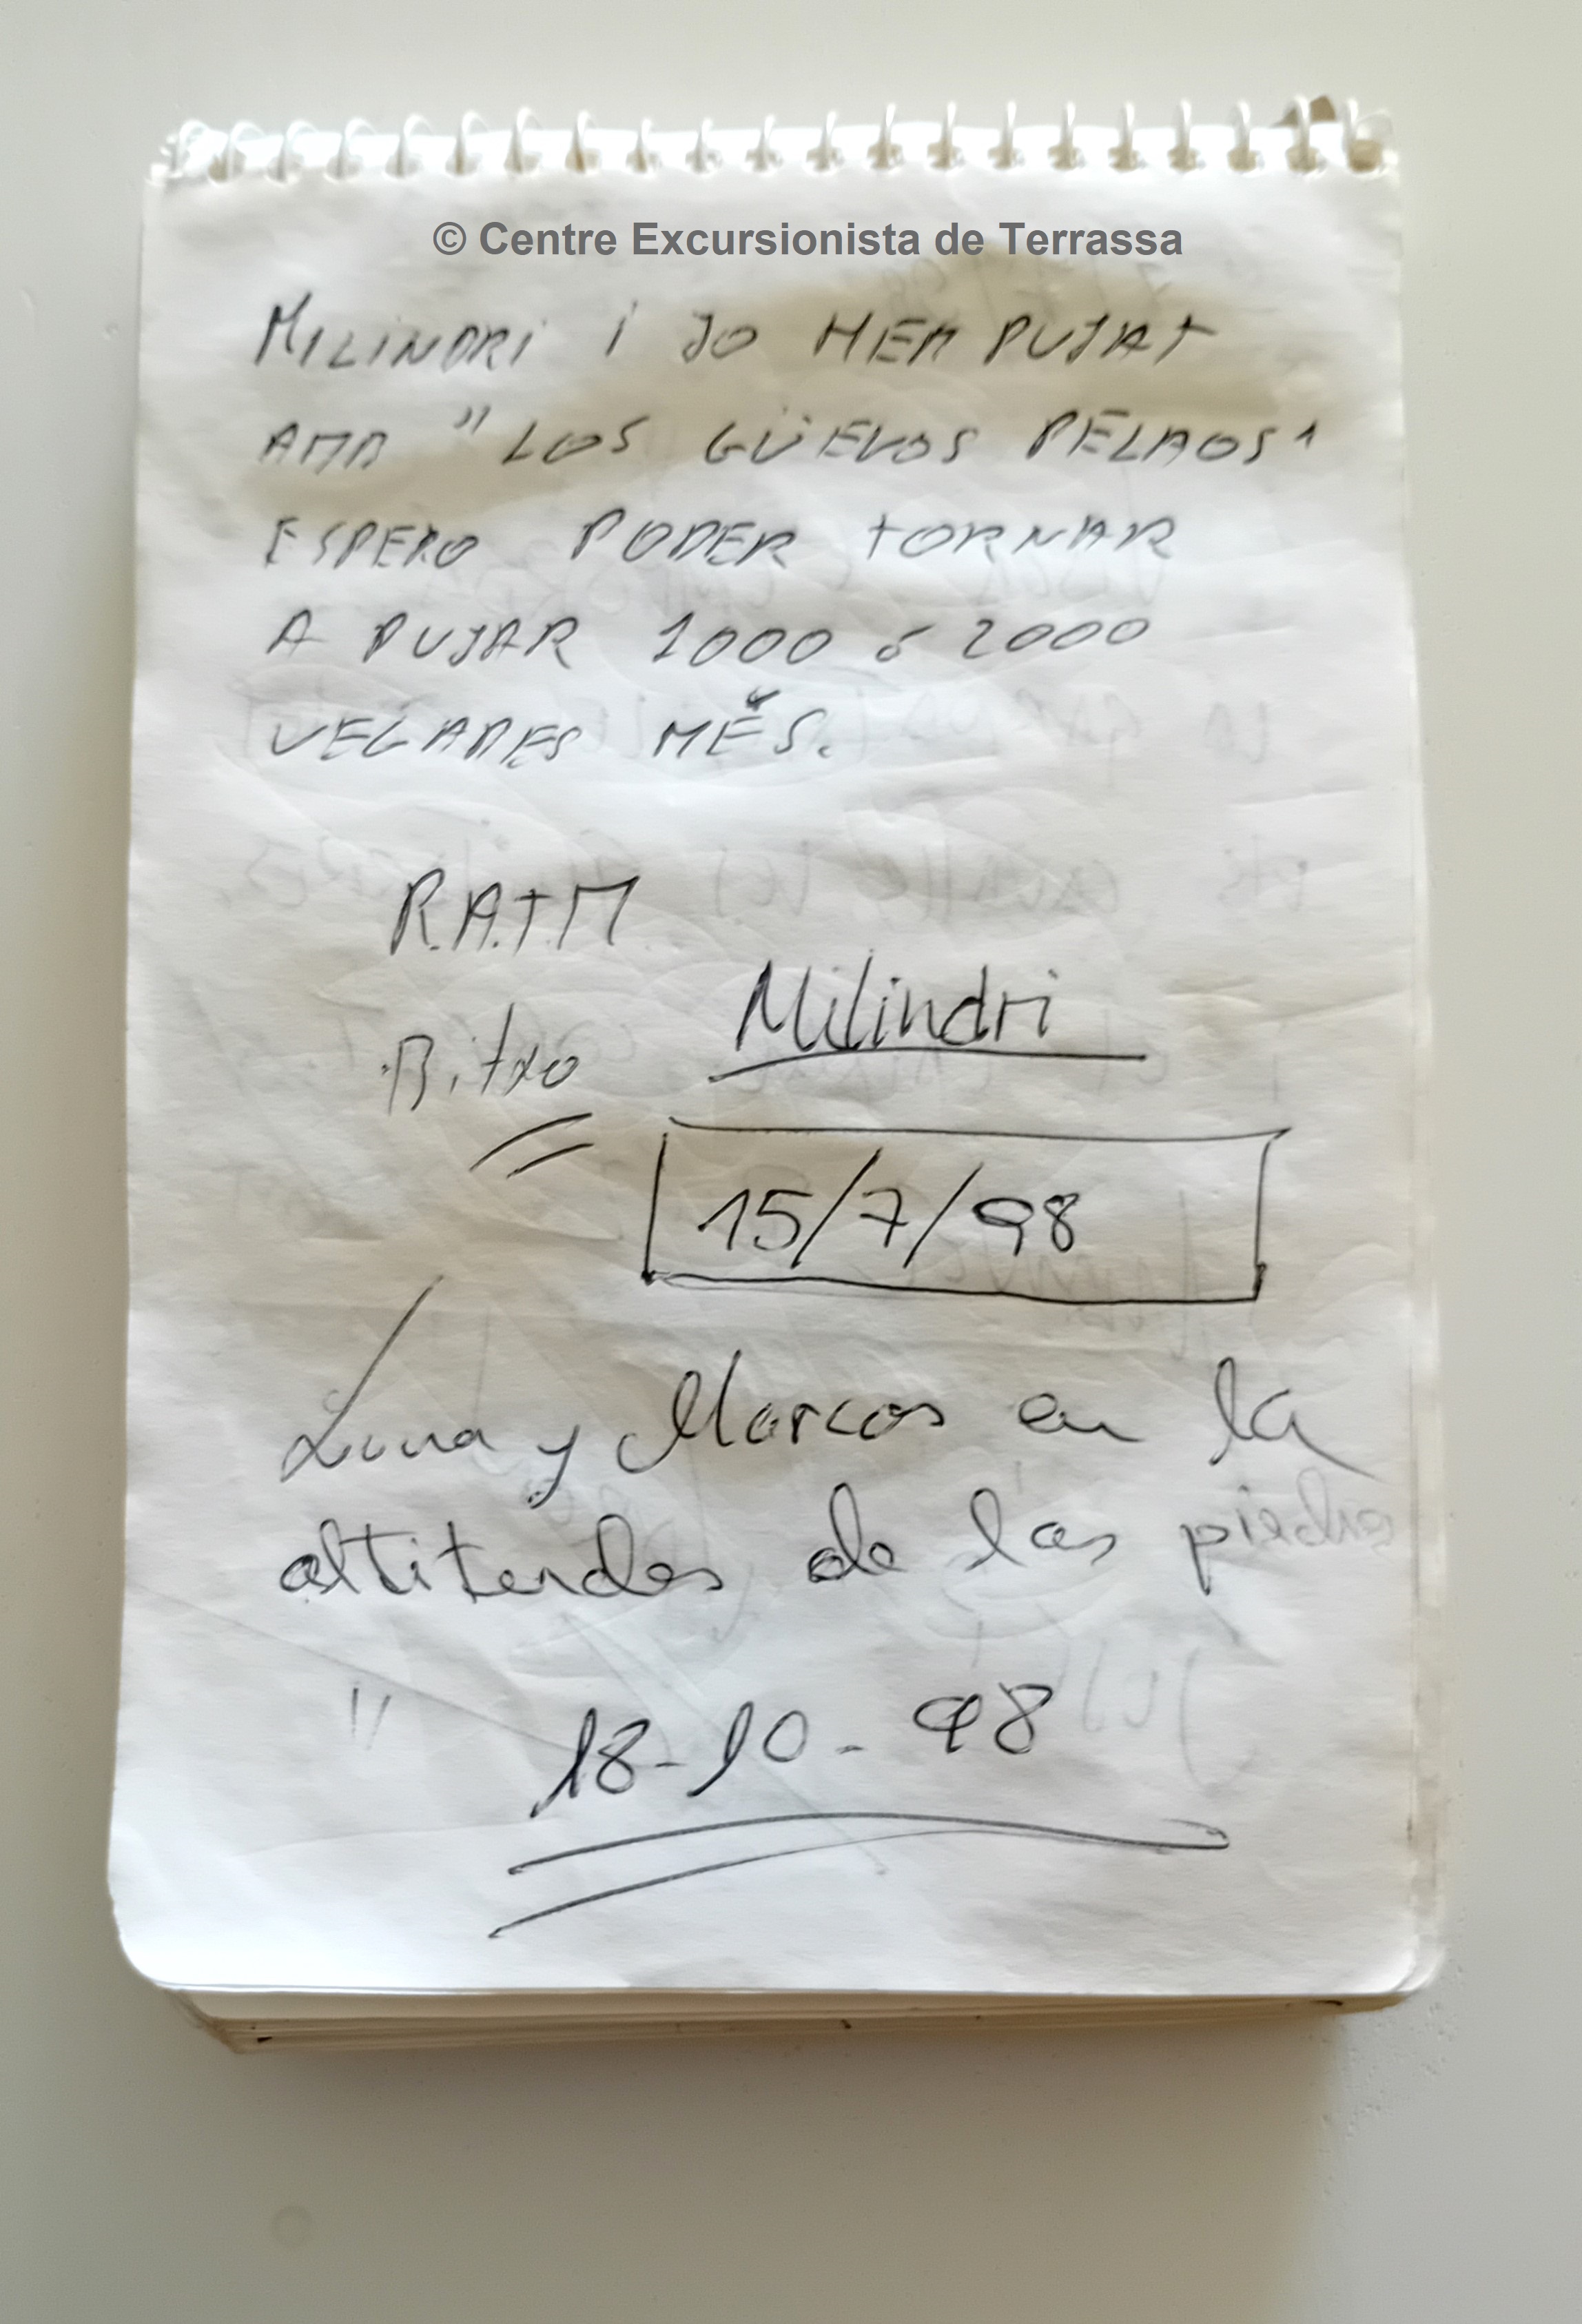 © Centre Excursionista de Terrassa
MILINDRI i JO HEM PUJAT
AMB "LOS GÜEVOS PELAOS"
ESPERO PODER TORNAR
A PUJAR 1000 ó 2000
VEGADES MÉS.
R.A.T.M
Milindri
Bitxo
15/7/98
Luna y Marcos en la
altitudes de las piedras
18-10-98